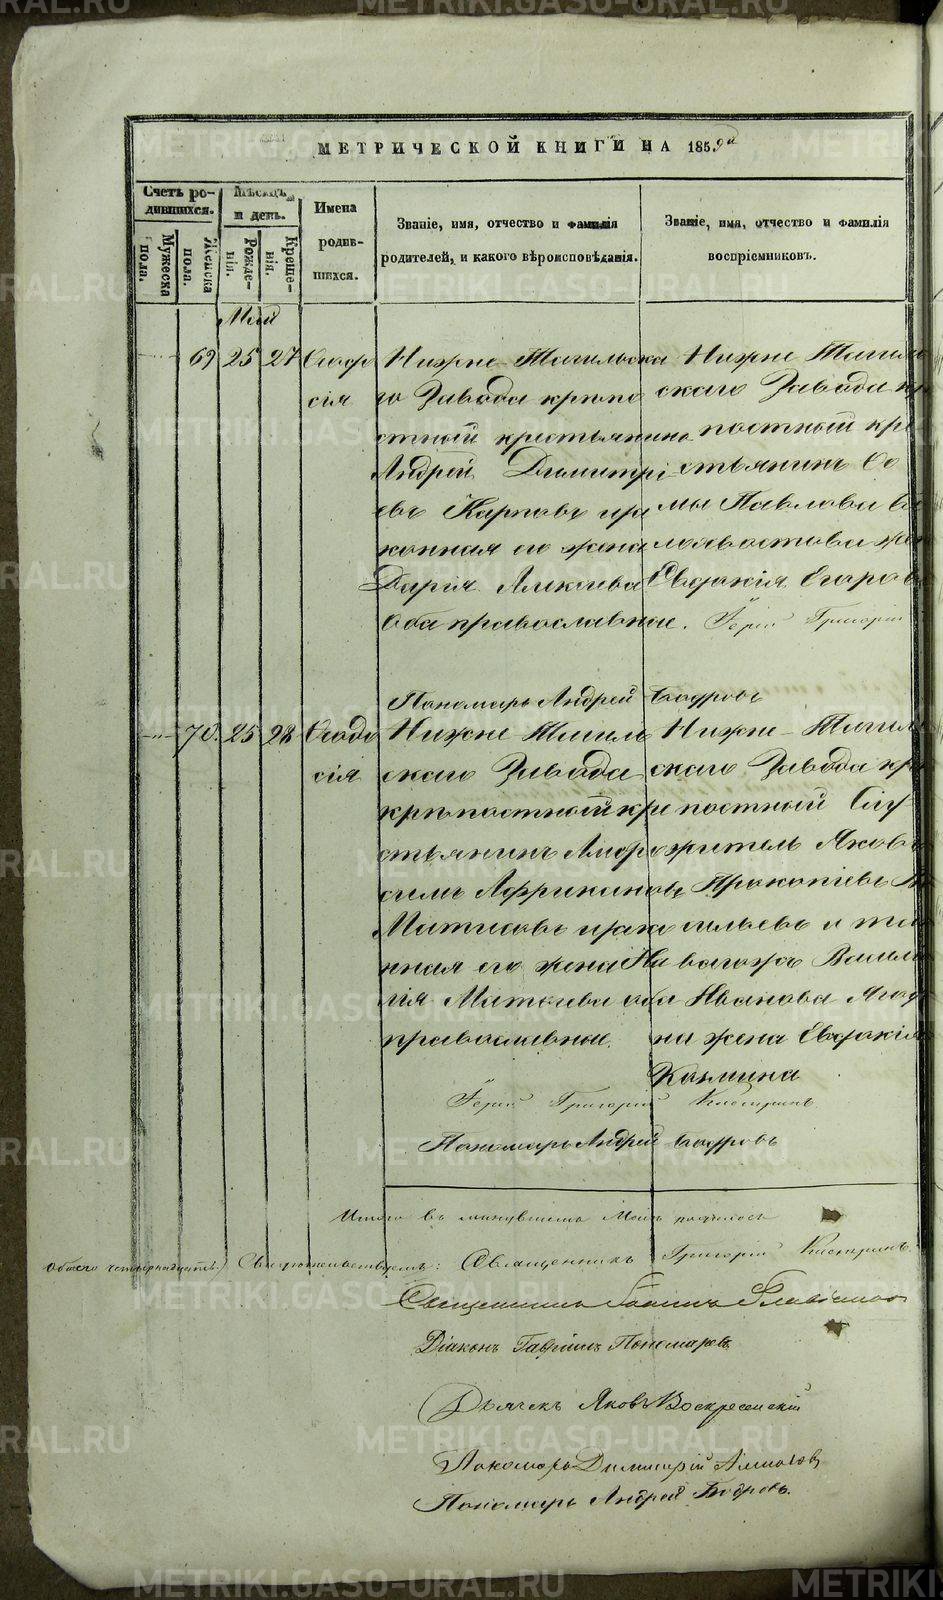 МЕТРИЧЕСКОЙ КНИГИ НА 1859й
Счетъ родившихся.
Мужеска пола.
Женска пола.
Мѣсяцъ и день.
Рожденія.
Крещенія.
Имена родившихся.
Званіе, имя, отчество и фамилія
родителей, и какого вѣроисповѣданія.
Званіе, имя, отчество и фамилія
воспріемниковъ.
Май
69 25 27
сія
Нижне-Тагильска
го Завода крѣпо
стный крестьянинъ
Андрей Димитрі
евъ Карповъ и за
конная его жена
Дарія Алексѣева
оба православные.
Нижне Тагиль
скаго Завода кр
постный кре
стьянинъ
мы Павлова
жен
Евдокія Егоров
Іерей Григорій
Пономарь Андрей Бодровъ
70. 25 28 Ѳеодо
сія
Нижне Тагиль
скаго Завода
крѣпостный кре
стьянинъ Амфро
симъ Африкановъ
Матисовъ и зако
нная его жена Ната
лія Матвѣева оба
православные.
Нижне-Тагиль
скаго Завода кр
постный Слу
житель Яковъ
Прокопіевъ Ва
сильевъ и
Иванова
на жена Евдокія
Козмина
Іерей Григорій Кастринъ
Пономарь Андрей Бодровъ
Итого въ минувшемъ Маѣ родилось
обоего четырнадцать) Свидѣтельствуемъ: Священникъ Григорій Кастринъ.
Священникъ Іоаннъ
Діаконъ Гавріилъ Пономаревъ
Дьячекъ Яковъ Воскресенскій
Пономарь Димитрій
Пономарь Андрей Бодровъ.
METRIKI.GASO-URAL.RU